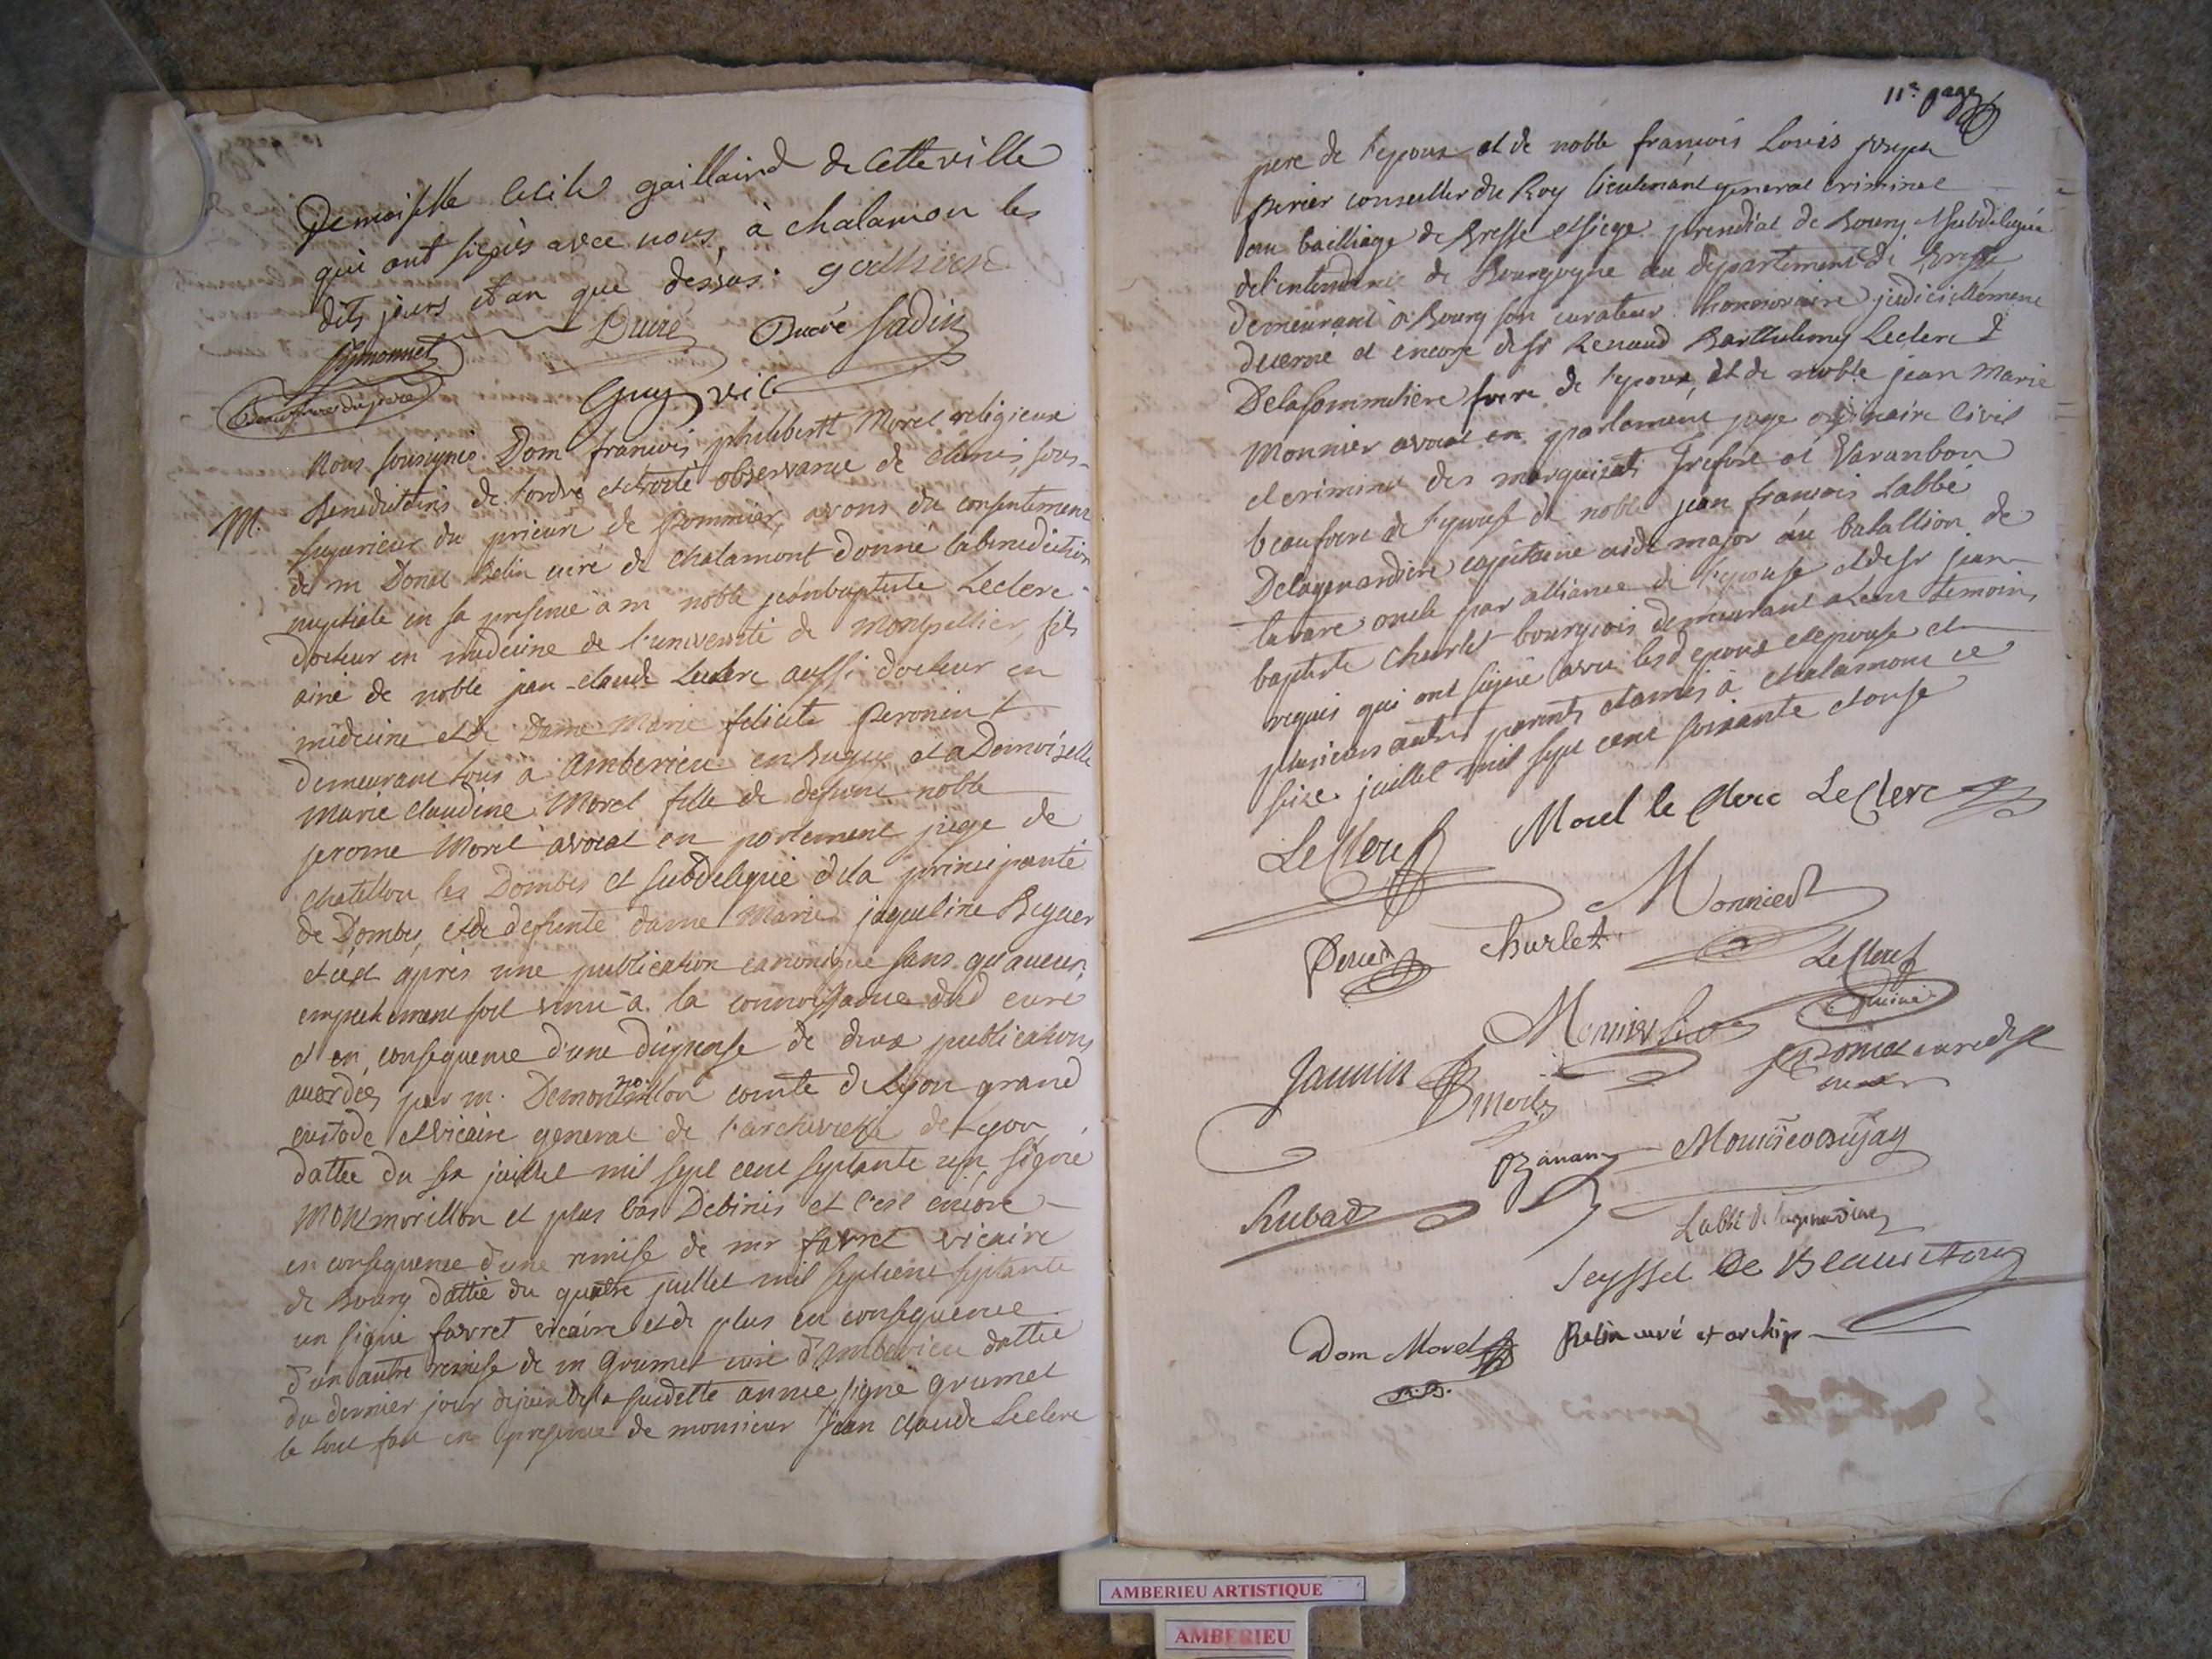 Demoiselle Cecile gaillaird de Cette ville
qui ont signés avec nous, à chalamon les
dits jours et an que dessus. godhien
Ducré Ducré Sadin
Symonnet
Guy vic
Nous soussignés Dom francois philibertt Morel religieux
M. Benedictins de l'ordre et étroite observance de clunis, sous-
superieur du prieure de pommier, avons du consentement
de m Donet Belin curé de Chalamont donné la benediction
nuptiale en sa presence a m noble jeanbaptiste Leclerc
docteur en medecine de l'université de Montpellier, fils
ainé de noble jean-claude Leclerc aussi docteur en
medecine et de Dame Marie felicité peronin
demeurant tous a Amberieu en Bugey et a Demoiselle
Marie claudine Morel fille de defunt noble
jerome Morel avocat en parlement juge de
chatillon les Dombes et subdelegué de la principauté
de Dombes, et de defunte dame Marie jaqueline Beguer
et c'est après une publication canonique sans qu'aucun
empechement soit venu a la connoissance dud curé
et en consequence d'une dispense de deux publications
accordées par m. Demontmorillon comte de Lyon grand
custode et vicaire general de l'archeveché de Lyon
dattée du six juillet mil sept cent septante un signé
Montmorillon et plus bas Debinis et c'est encore
en consequence d'une remise de mr favret vicaire
de Bourg dattée du quatre juillet mil septcent septante
un signé favret vicaire et de plus en consequence
d'un autre remise de m Grumet curé d'Amberieu dattée
du dernier jour de juin de la susdette annee signé Grumet
le tout fait en presence de monsieur jean claude Leclerc
11e page
pere de l'epoux et de noble francois Louis joseph
perier conseiller du Roy lieutenant general criminel
au bailliage de Bresse et siege presidial de Bourg et subdelegué
de l'intendance de Bourgogne au departement de Bresse
demeurant à Bourg son curateur honoraire judiciellement
decerné et encore de sr Renaud Barthelemy Leclerc
Delasommelière frere de l'epoux, et de noble jean Marie
Monnier avocat en parlement juge ordinaire civil
et criminel des marquisats Trefort et Varambon
beaufrere de l'epouse de noble jean francois Labbé
Delagenardiere capitaine aide major au batallion de
tavare oncle par alliance de l'epouse et de sr jean
baptiste Churlet bourgeois demeurant a Lent temoins
requis qui ont signé avec lesd epoux et epouse et
plusieurs autres parents et amis à chalamont ce
seize juillet mil sept cent soixante et onse
Leclerc Morel le Clerc LeClerc
Monnier
Perier Churlet
Leclerc
Monnier
Donet curé de
Jannin
Merle
Ozanam
Rubat
Labbé de lagenardiere
Seyssel De Beauretour
Dom Morel Belin curé et archip
AMBERIEU ARTISTIQUE
AMBERIEU